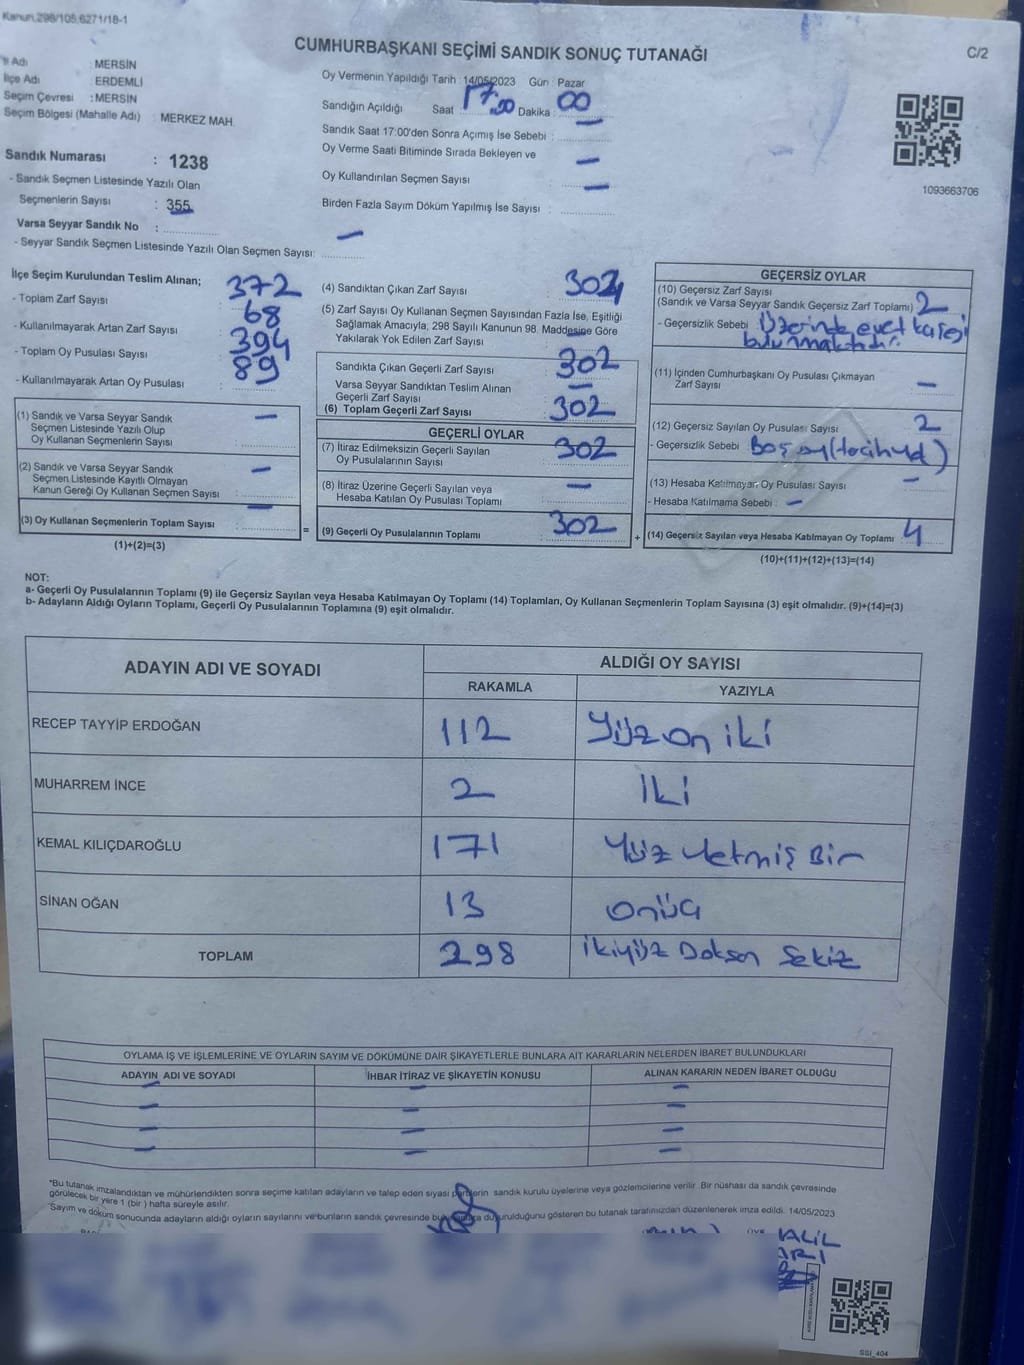 Kanun,298/105,6271/18-1
C/2
CUMHURBAŞKANI SEÇİMİ SANDIK SONUÇ TUTANAĞI
İl Adı : MERSİN
İlçe Adı : ERDEMLİ
Seçim Çevresi : MERSİN
Seçim Bölgesi (Mahalle Adı) : MERKEZ MAH.
Sandık Numarası : 1238
- Sandık Seçmen Listesinde Yazılı Olan
Seçmenlerin Sayısı : 355
Varsa Seyyar Sandık No :
- Seyyar Sandık Seçmen Listesinde Yazılı Olan Seçmen Sayısı: —
Oy Vermenin Yapıldığı Tarih :14/05/2023 Gün : Pazar
Sandığın Açıldığı Saat 17:00 Dakika : 00
Sandık Saat 17:00'den Sonra Açımış İse Sebebi : —
Oy Verme Saati Bitiminde Sırada Bekleyen ve
Oy Kullandırılan Seçmen Sayısı : —
Birden Fazla Sayım Döküm Yapılmış İse Sayısı : —
1093663706
İlçe Seçim Kurulundan Teslim Alınan;
- Toplam Zarf Sayısı : 372
- Kullanılmayarak Artan Zarf Sayısı : 68
- Toplam Oy Pusulası Sayısı : 394
- Kullanılmayarak Artan Oy Pusulası : 89
(1) Sandık ve Varsa Seyyar Sandık
Seçmen Listesinde Yazılı Olup
Oy Kullanan Seçmenlerin Sayısı : —
(2) Sandık ve Varsa Seyyar Sandık
Seçmen Listesinde Kayıtlı Olmayan
Kanun Gereği Oy Kullanan Seçmen Sayısı : —
(3) Oy Kullanan Seçmenlerin Toplam Sayısı : —
(1)+(2)=(3)
(4) Sandıktan Çıkan Zarf Sayısı : 302
(5) Zarf Sayısı Oy Kullanan Seçmen Sayısından Fazla İse, Eşitliği
Sağlamak Amacıyla, 298 Sayılı Kanunun 98. Maddesine Göre
Yakılarak Yok Edilen Zarf Sayısı : —
Sandıkta Çıkan Geçerli Zarf Sayısı : 302
Varsa Seyyar Sandıktan Teslim Alınan
Geçerli Zarf Sayısı : —
(6) Toplam Geçerli Zarf Sayısı : 302
GEÇERLİ OYLAR
(7) İtiraz Edilmeksizin Geçerli Sayılan
Oy Pusulalarının Sayısı : 302
(8) İtiraz Üzerine Geçerli Sayılan veya
Hesaba Katılan Oy Pusulası Toplamı : —
= (9) Geçerli Oy Pusulalarının Toplamı : 302
GEÇERSİZ OYLAR
(10) Geçersiz Zarf Sayısı
(Sandık ve Varsa Seyyar Sandık Geçersiz Zarf Toplamı) : 2
- Geçersizlik Sebebi : Üzerinde evet kaşesi
bulunmaktadır.
(11) İçinden Cumhurbaşkanı Oy Pusulası Çıkmayan
Zarf Sayısı : —
(12) Geçersiz Sayılan Oy Pusulası Sayısı : 2
- Geçersizlik Sebebi : Boş oy
(13) Hesaba Katılmayan Oy Pusulası Sayısı : —
- Hesaba Katılmama Sebebi : —
+ (14) Geçersiz Sayılan veya Hesaba Katılmayan Oy Toplamı : 4
(10)+(11)+(12)+(13)=(14)
NOT:
a- Geçerli Oy Pusulalarının Toplamı (9) ile Geçersiz Sayılan veya Hesaba Katılmayan Oy Toplamı (14) Toplamları, Oy Kullanan Seçmenlerin Toplam Sayısına (3) eşit olmalıdır. (9)+(14)=(3)
b- Adayların Aldığı Oyların Toplamı, Geçerli Oy Pusulalarının Toplamına (9) eşit olmalıdır.
ADAYIN ADI VE SOYADI ALDIĞI OY SAYISI
RAKAMLA YAZIYLA
RECEP TAYYİP ERDOĞAN 112 Yüz on iki
MUHARREM İNCE 2 İki
KEMAL KILIÇDAROĞLU 171 Yüz Yetmiş Bir
SİNAN OĞAN 13 onüç
TOPLAM 298 İkiyüz Doksan Sekiz
OYLAMA İŞ VE İŞLEMLERİNE VE OYLARIN SAYIM VE DÖKÜMÜNE DAİR ŞİKAYETLERLE BUNLARA AİT KARARLARIN NELERDEN İBARET BULUNDUKLARI
ADAYIN ADI VE SOYADI İHBAR İTİRAZ VE ŞİKAYETİN KONUSU ALINAN KARARIN NEDEN İBARET OLDUĞU
— — —
— — —
— — —
— — —
*Bu tutanak imzalandıktan ve mühürlendikten sonra seçime katılan adayların ve talep eden siyasi partilerin sandık kurulu üyelerine veya gözlemcilerine verilir. Bir nüshası da sandık çevresinde
görülecek bir yere 1 (bir ) hafta süreyle asılır.
Sayım ve döküm sonucunda adayların aldığı oyların sayılarını ve bunların sandık çevresinde duyurulduğunu gösteren bu tutanak tarafımızdan düzenlenerek imza edildi. 14/05/2023
HALİL
SSI_404